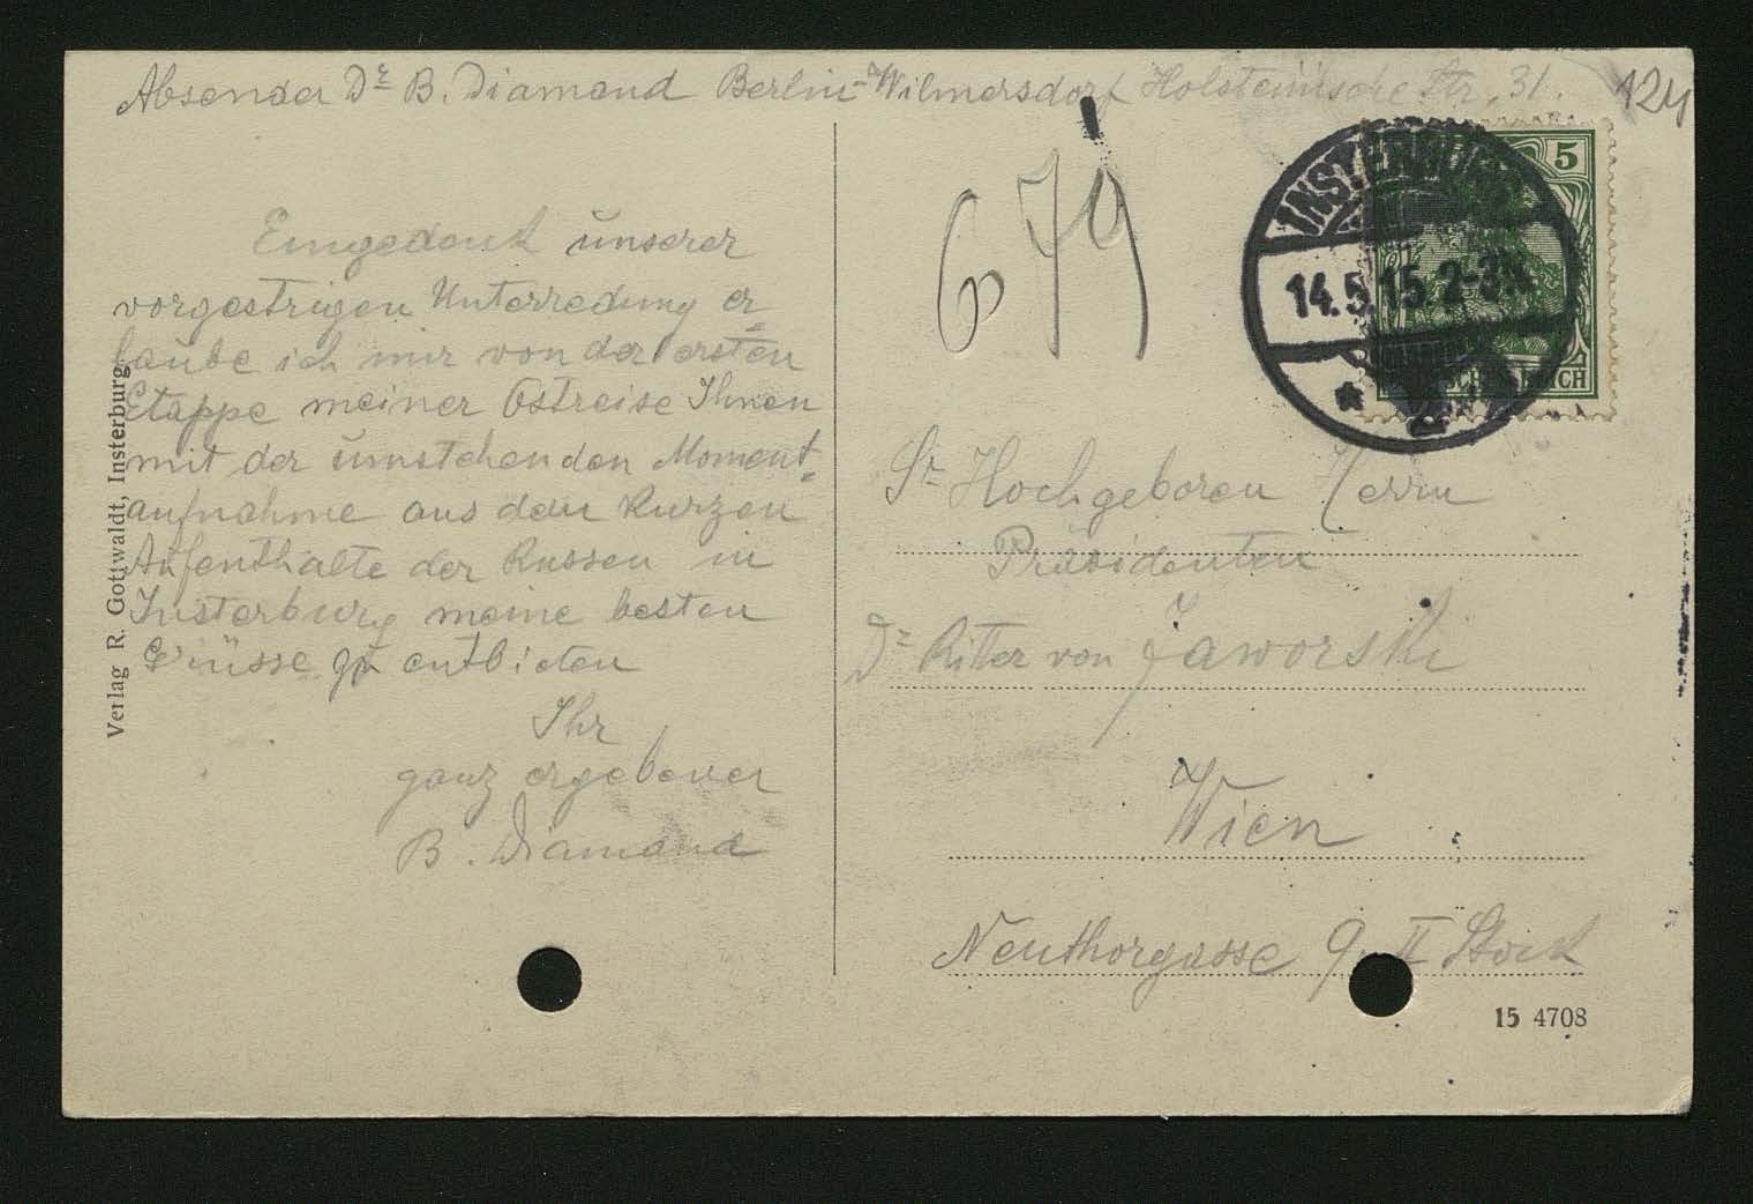 Absender Dr B. Diamand Berlin-Wilmersdorf Holsteinische Str. 31.
124
Eingedenk unserer
vorgestrigen Unterredung er
laube ich mir von der ersten
Etappe meiner Ostreise Ihnen
mit der umstehenden Moment-
aufnahme aus dem kurzen
Aufenthalte der Russen in
Insterburg meine besten
Grüsse zu entbieten
Ihr
ganz ergebener
B. Diamand
Verlag R. Gottwaldt, Insterburg.
679
INSTERBURG
14.5.15. 2-3N
* 2
5
DEUTSCHES REICH
Sr Hochgeboren Herrn
Präsidenten
Dr Ritter von Jaworski
Wien
Neuthorgasse 9. II Stock
15 4708